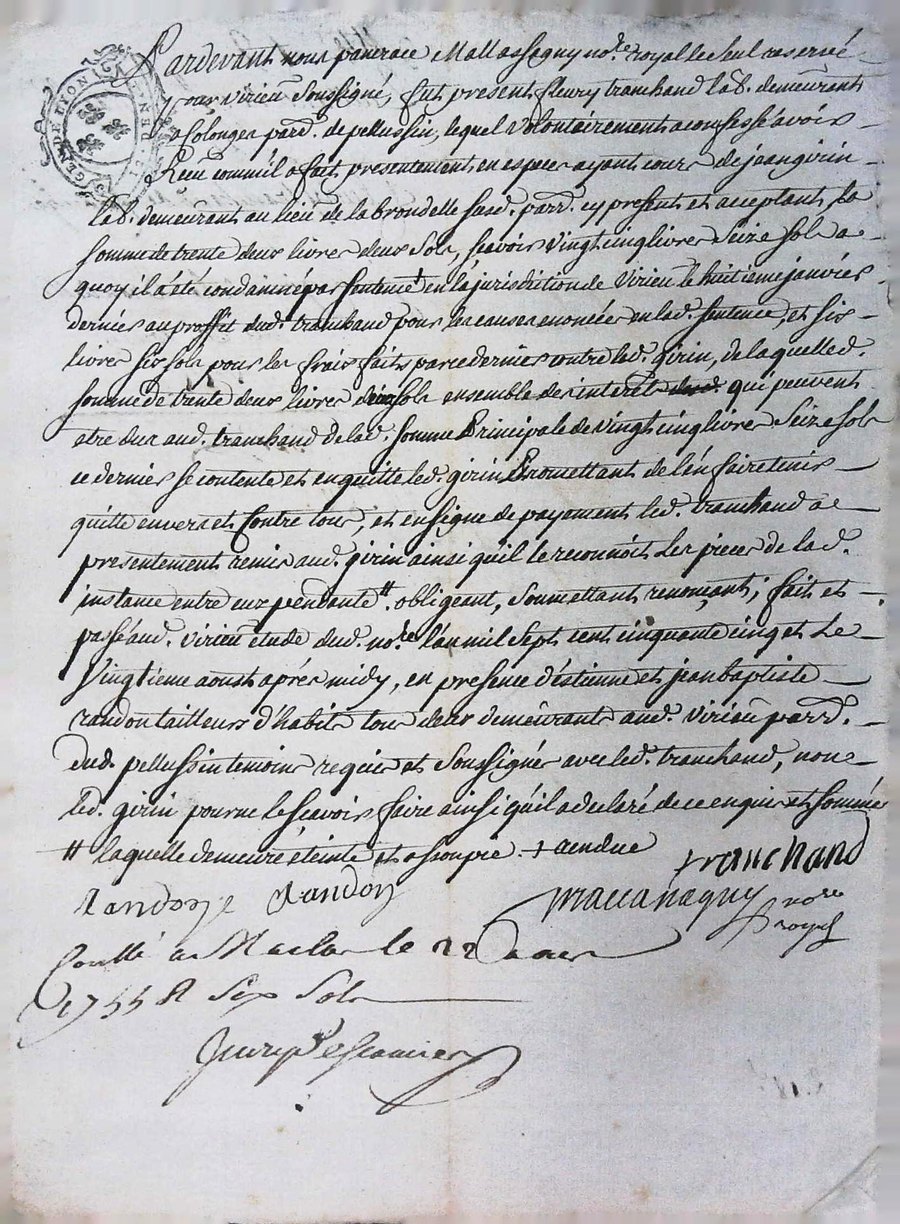 GEN. DE LION
Pardevant nous panerace Mallassagny no.re royal le seul reservé
pour virieu soussigné, fut present fleury tranchand lab. demeurant
a Colonges parr. de pellussin, lequel volontairement a confessé avoir
Receu comm'il a fait presentement en especes ayant cours de jean girin
lab. demeurant au lieu de la brondelle susd. parr. cy present et acceptant la
somme de trente deux livres deux sols, scavoir vingt cinq livres seize sols a
quoy il a été condamné par sentence + en la jurisdiction de virieu le huitieme janvier
dernier au proffit dud. tranchand pour les causes enoncées en lad. sentence, et six
livres six sols pour les frais faits par ce dernier contre led. girin, de laquelle d.
somme de trente deux livres deux sols ensemble des interets qui peuvent
etre dus aud. tranchand de lad. somme Principale de vingt cinq livres seize sols
ce dernier se contente et en quitte led. girin Promettant de l'en faire tenir
quitte envers et Contre tous, et en signe de payement led. tranchand a
presentement remis aud. girin ainsi qu'il le reconnoit les pieces de la d.
instance entre eux pendante #. obligeant, soumettant renonçant; fait et
passé aud. virieu étude dud. no.re l'an mil sept cent cinquante cinq et le
vingtieme aoust aprés midy, en presence d'estienne et jean baptiste
randon tailleurs d'habits tous deux demeurants aud. virieu parr.
dud. pellussin temoins requis et soussignés avec led. tranchand, non
led. girin pour ne le scavoir faire ainsi qu'il a declaré de ce enquis et sommé
# laquelle demeure éteinte et assoupie. + rendue
tranchand
Randon Randon
no.re
royal
Conllé a Maclas le 22 aout
1755 R Six Sols